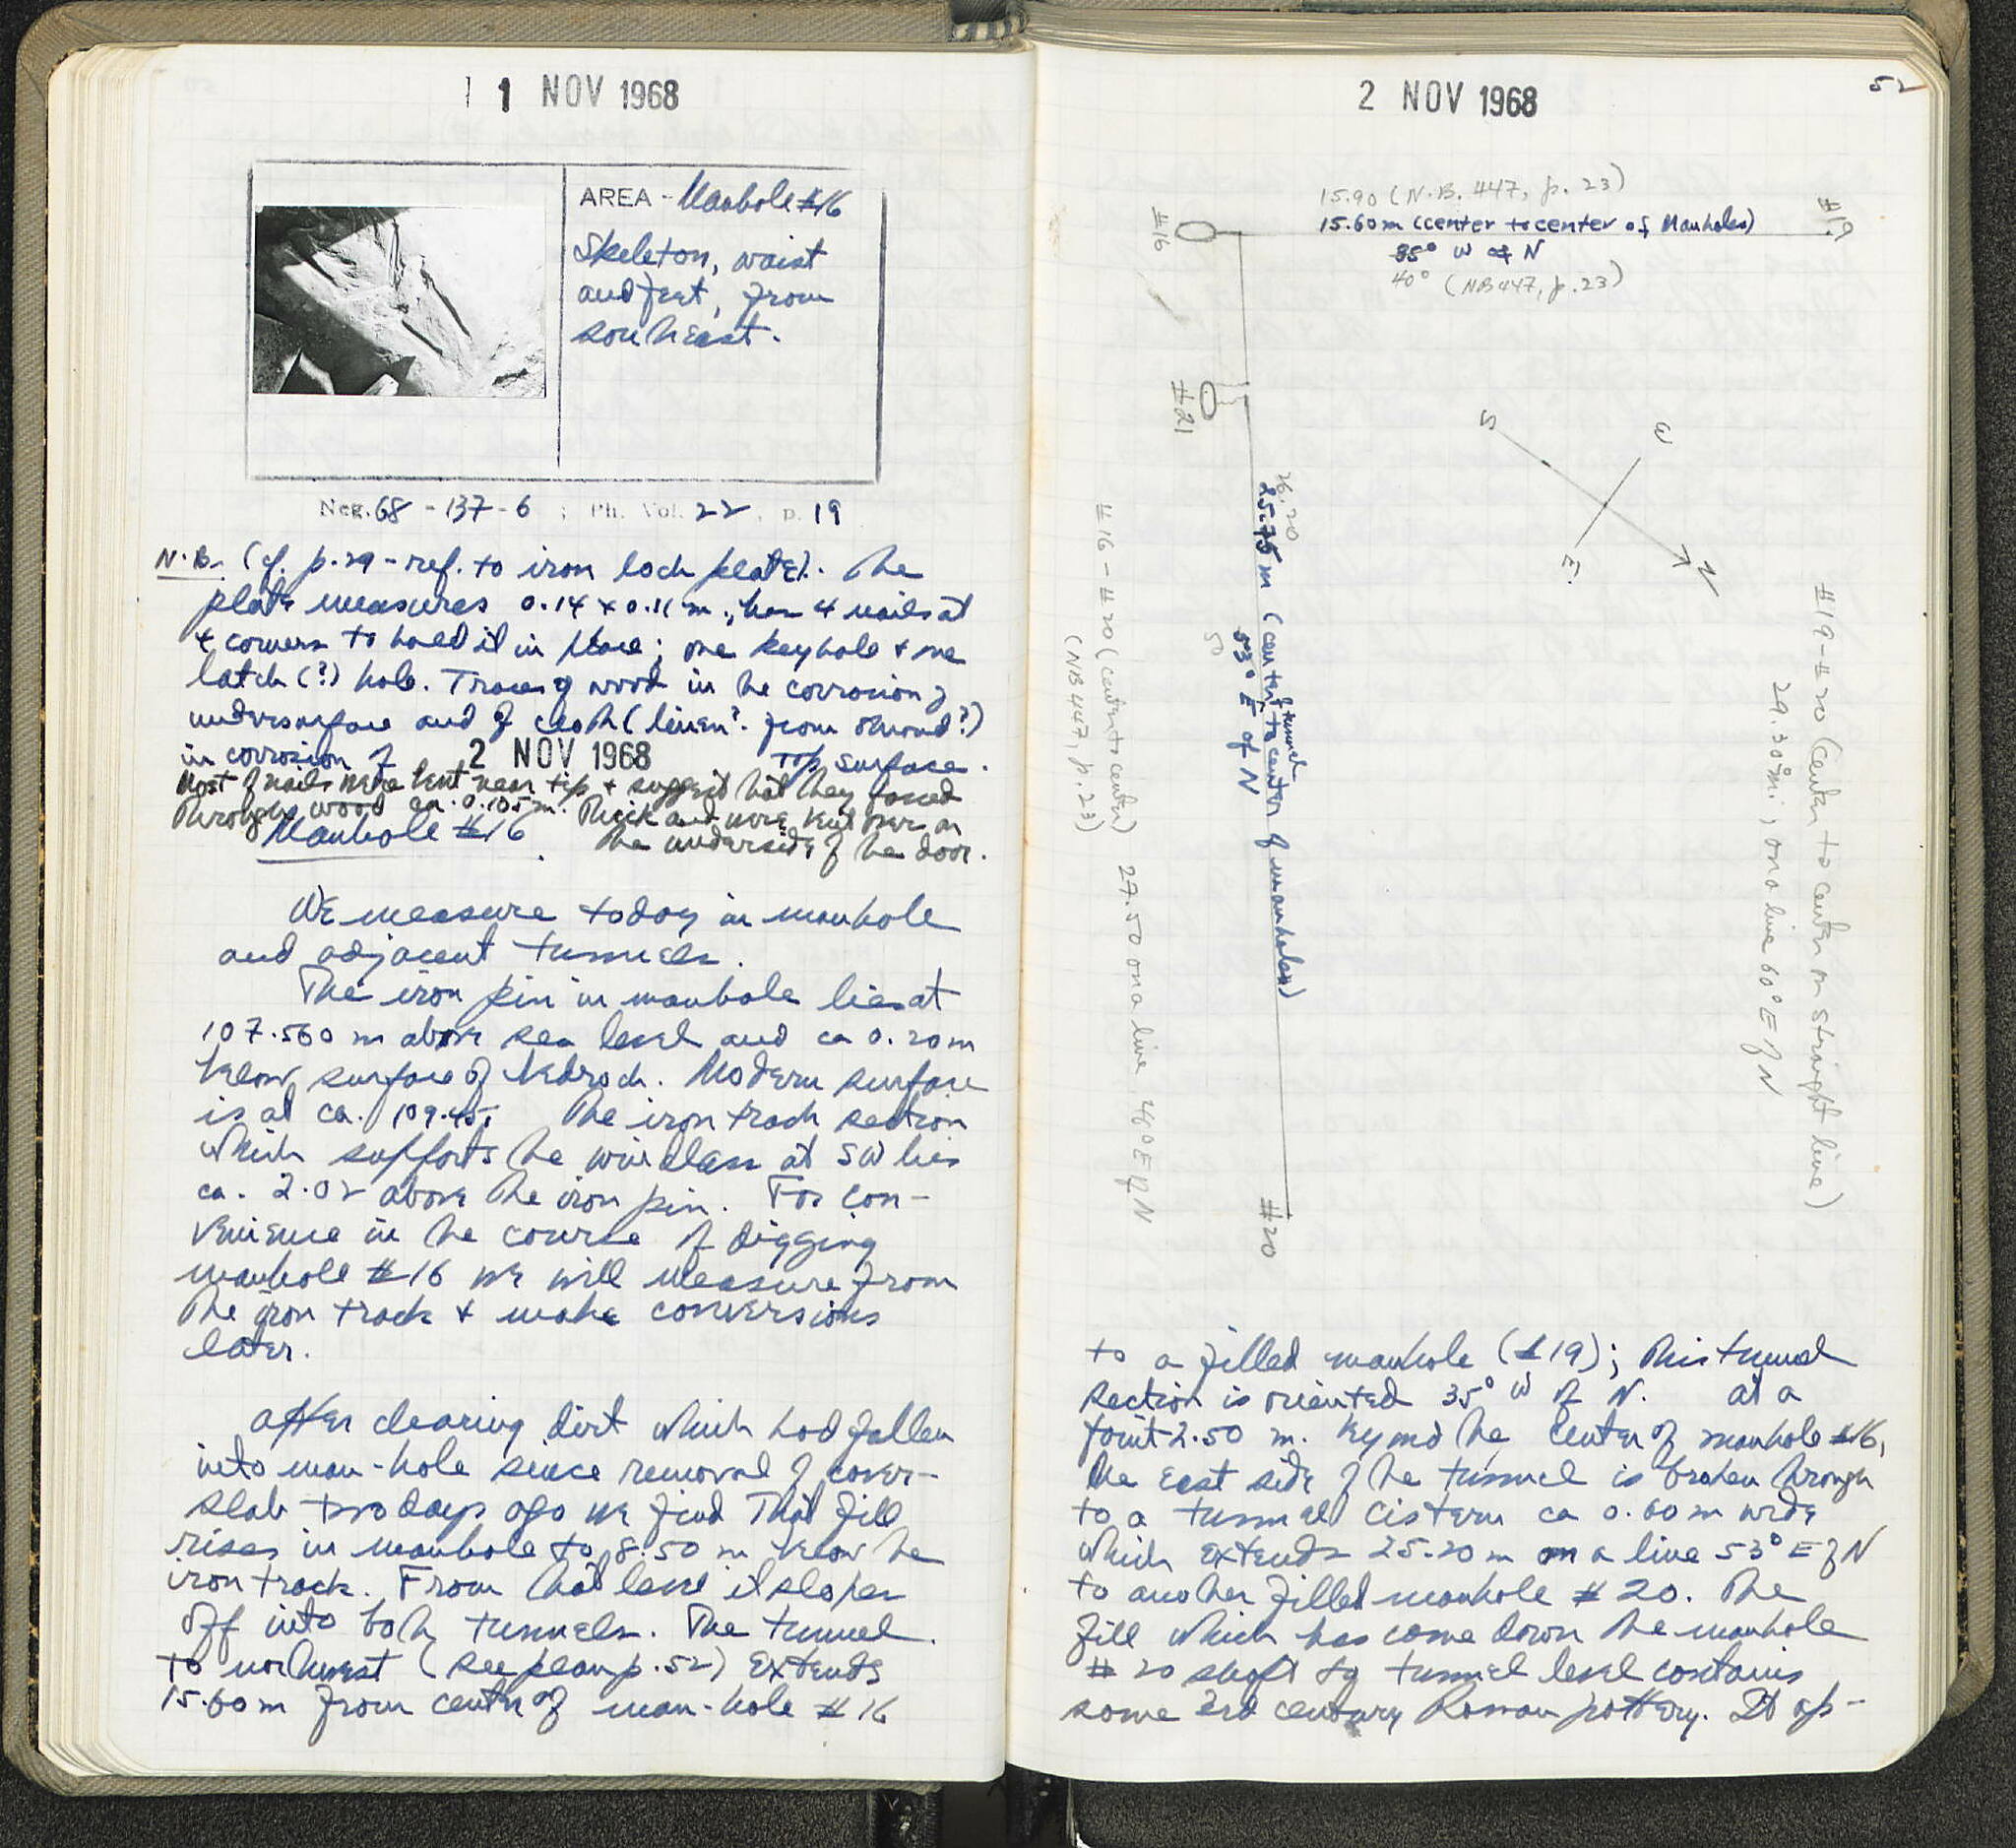 1 1 NOV 1968
AREA - Manhole #16
Skeleton, waist
and feet, from
southeast.
Neg. 68 - 137 - 6 ; Ph. Vol. 22, p. 19
N.B. (cf. p. 29 - ref. to iron lock plate). The
plate measures 0.14 x 0.11 m., has 4 nails at
4 corners to hold it in place; one keyhole + one
latch (?) hole. Traces of wood in the corrosion of
undersurface and of cloth (linen? from shroud?)
in corrosion of top surface.
2 NOV 1968
Most of nails were bent near tip + suggest that they passed
through wood ca. 0.105 m. thick and were bent over on
the underside of the door.
Manhole #16
We measure today in manhole
and adjacent tunnels.
The iron pin in manhole lies at
107.560 m above sea level and ca 0.20 m
below surface of bedrock. Modern surface
is at ca. 109.45. The iron track section
which supports the windlass at SW lies
ca. 2.02 above the iron pin. For con-
venience in the course of digging
manhole #16 we will measure from
the iron track + make conversions
later.
After clearing dirt which had fallen
into man-hole since removal of cover-
slab two days ago we find that fill
rises in manhole to 8.50 m below the
iron track. From that level it slopes
off into both tunnels. The tunnel
to northwest (see plan p. 52) extends
15.60 m from center of man-hole #16
2 NOV 1968
52
15.90 (N.B. 447, p. 23)
15.60 m (center to center of Manholes)
35° W of N
40° (NB 447, p. 23)
#16
#19
#21
S
W
E
N
26.20
25.75 m (center of tunnel to center of manholes)
53° E of N
50
#16 - #20 (center to center) 27.50 on a line 48° E of N
(NB 447, p. 23)
#19 - #20 (center to center on straight line)
29.30 m; on a line 60° E of N
#20
to a filled manhole (#19); this tunnel
section is oriented 35° W of N. At a
point 2.50 m. beyond the center of manhole #16,
the east side of the tunnel is broken through
to a tunnel cistern ca 0.60 m wide
which extends 25.20 m on a line 53° E of N
to another filled manhole #20. The
fill which has come down the manhole
#20 shaft to tunnel level contains
some 3rd century Roman pottery. It ap-